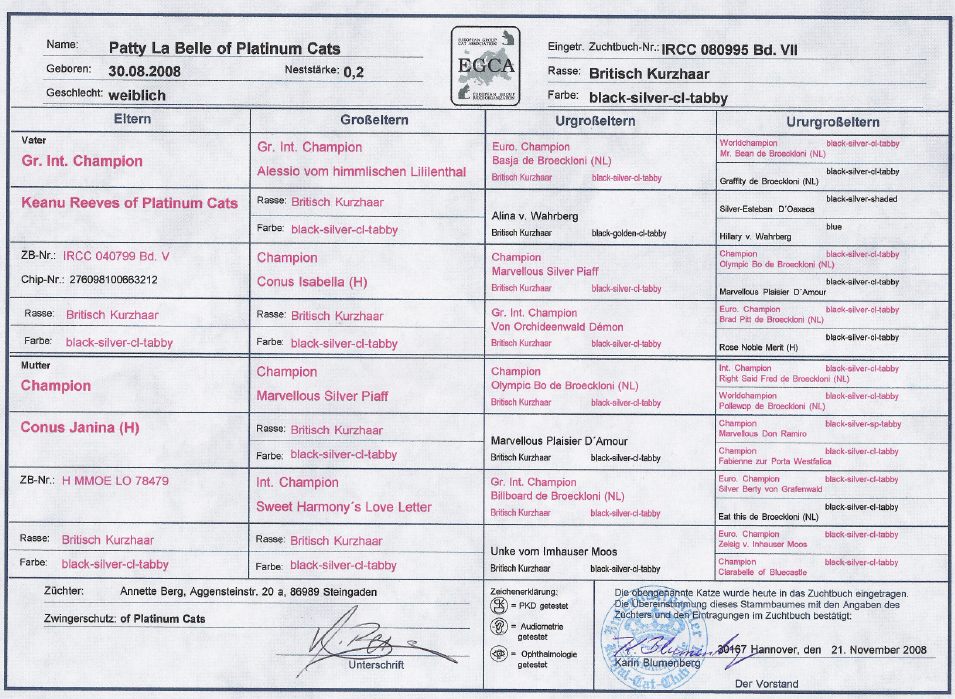 Name: Patty La Belle of Platinum Cats
Geboren: 30.08.2008 Neststärke: 0,2
Geschlecht: weiblich
EUROPEAN GROUP
CAT ASSOCIATION
EGCA
Eingetr. Zuchtbuch-Nr.: IRCC 080995 Bd. VII
Rasse: Britisch Kurzhaar
Farbe: black-silver-cl-tabby
Eltern
Großeltern
Urgroßeltern
Ururgroßeltern
Vater
Gr. Int. Champion
Keanu Reeves of Platinum Cats
ZB-Nr.: IRCC 040799 Bd. V
Chip-Nr.: 276098100663212
Rasse: Britisch Kurzhaar
Farbe: black-silver-cl-tabby
Mutter
Champion
Conus Janina (H)
ZB-Nr.: H MMOE LO 78479
Rasse: Britisch Kurzhaar
Farbe: black-silver-cl-tabby
Gr. Int. Champion
Alessio vom himmlischen Lililenthal
Rasse: Britisch Kurzhaar
Farbe: black-silver-cl-tabby
Champion
Conus Isabella (H)
Rasse: Britisch Kurzhaar
Farbe: black-silver-cl-tabby
Champion
Marvellous Silver Piaff
Rasse: Britisch Kurzhaar
Farbe: black-silver-cl-tabby
Int. Champion
Sweet Harmony´s Love Letter
Rasse: Britisch Kurzhaar
Farbe: black-silver-cl-tabby
Euro. Champion
Basja de Broeckloni (NL)
Britisch Kurzhaar black-silver-cl-tabby
Alina v. Wahrberg
Britisch Kurzhaar black-golden-cl-tabby
Champion
Marvellous Silver Piaff
Britisch Kurzhaar black-silver-cl-tabby
Gr. Int. Champion
Von Orchideenwald Démon
Britisch Kurzhaar black-silver-cl-tabby
Champion
Olympic Bo de Broeckloni (NL)
Britisch Kurzhaar black-silver-cl-tabby
Marvellous Plaisier D´Amour
Britisch Kurzhaar black-silver-cl-tabby
Gr. Int. Champion
Billboard de Broeckloni (NL)
Britisch Kurzhaar black-silver-cl-tabby
Unke vom Imhauser Moos
Britisch Kurzhaar black-silver-cl-tabby
Worldchampion black-silver-cl-tabby
Mr. Bean de Broeckloni (NL)
black-silver-cl-tabby
Graffity de Broeckloni (NL)
black-silver-shaded
Silver-Esteban D´Oaxaca
blue
Hillary v. Wahrberg
Champion black-silver-cl-tabby
Olympic Bo de Broeckloni (NL)
black-silver-cl-tabby
Marvellous Plaisier D´Amour
Euro. Champion black-silver-cl-tabby
Brad Pitt de Broeckloni (NL)
black-silver-cl-tabby
Rose Noble Merit (H)
Int. Champion black-silver-cl-tabby
Right Said Fred de Broeckloni (NL)
Worldchampion black-silver-cl-tabby
Pollewop de Broeckloni (NL)
Champion black-silver-sp-tabby
Marvellous Don Ramiro
Champion black-silver-cl-tabby
Fabienne zur Porta Westfalica
Euro. Champion black-silver-cl-tabby
Silver Berty von Grafenwald
black-silver-cl-tabby
Eat this de Broeckloni (NL)
Euro. Champion black-silver-cl-tabby
Zeisig v. Inhauser Moos
Champion black-silver-cl-tabby
Clarabelle of Bluecastle
Züchter: Annette Berg, Aggensteinstr. 20 a, 86989 Steingaden
Zwingerschutz: of Platinum Cats
Unterschrift
Zeichenerklärung:
= PKD getestet
= Audiometrie
getestet
= Ophthalmologie
getestet
Die obengenannte Katze wurde heute in das Zuchtbuch eingetragen.
Die Übereinstimmung dieses Stammbaumes mit den Angaben des
Züchters und den Eintragungen im Zuchtbuch bestätigt:
K. Blumenberg
30167 Hannover, den 21. November 2008
Karin Blumenberg
Royal-Cat-Club
Der Vorstand